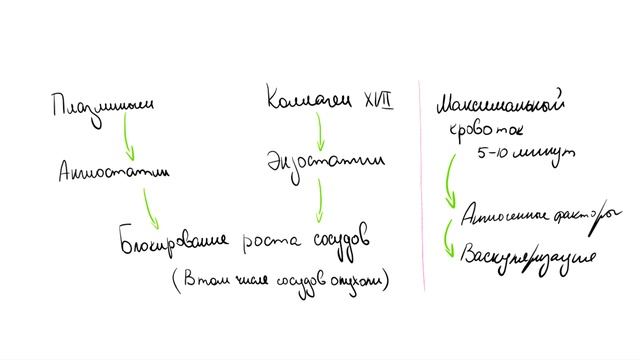 Плазминоген
Коллаген XVII
Ангиостатин
Эндостатин
Блокирование роста сосудов
(В том числе сосудов опухоли)
Максимальный
кровоток
5-10 минут
Ангиогенные факторы
Васкуляризация